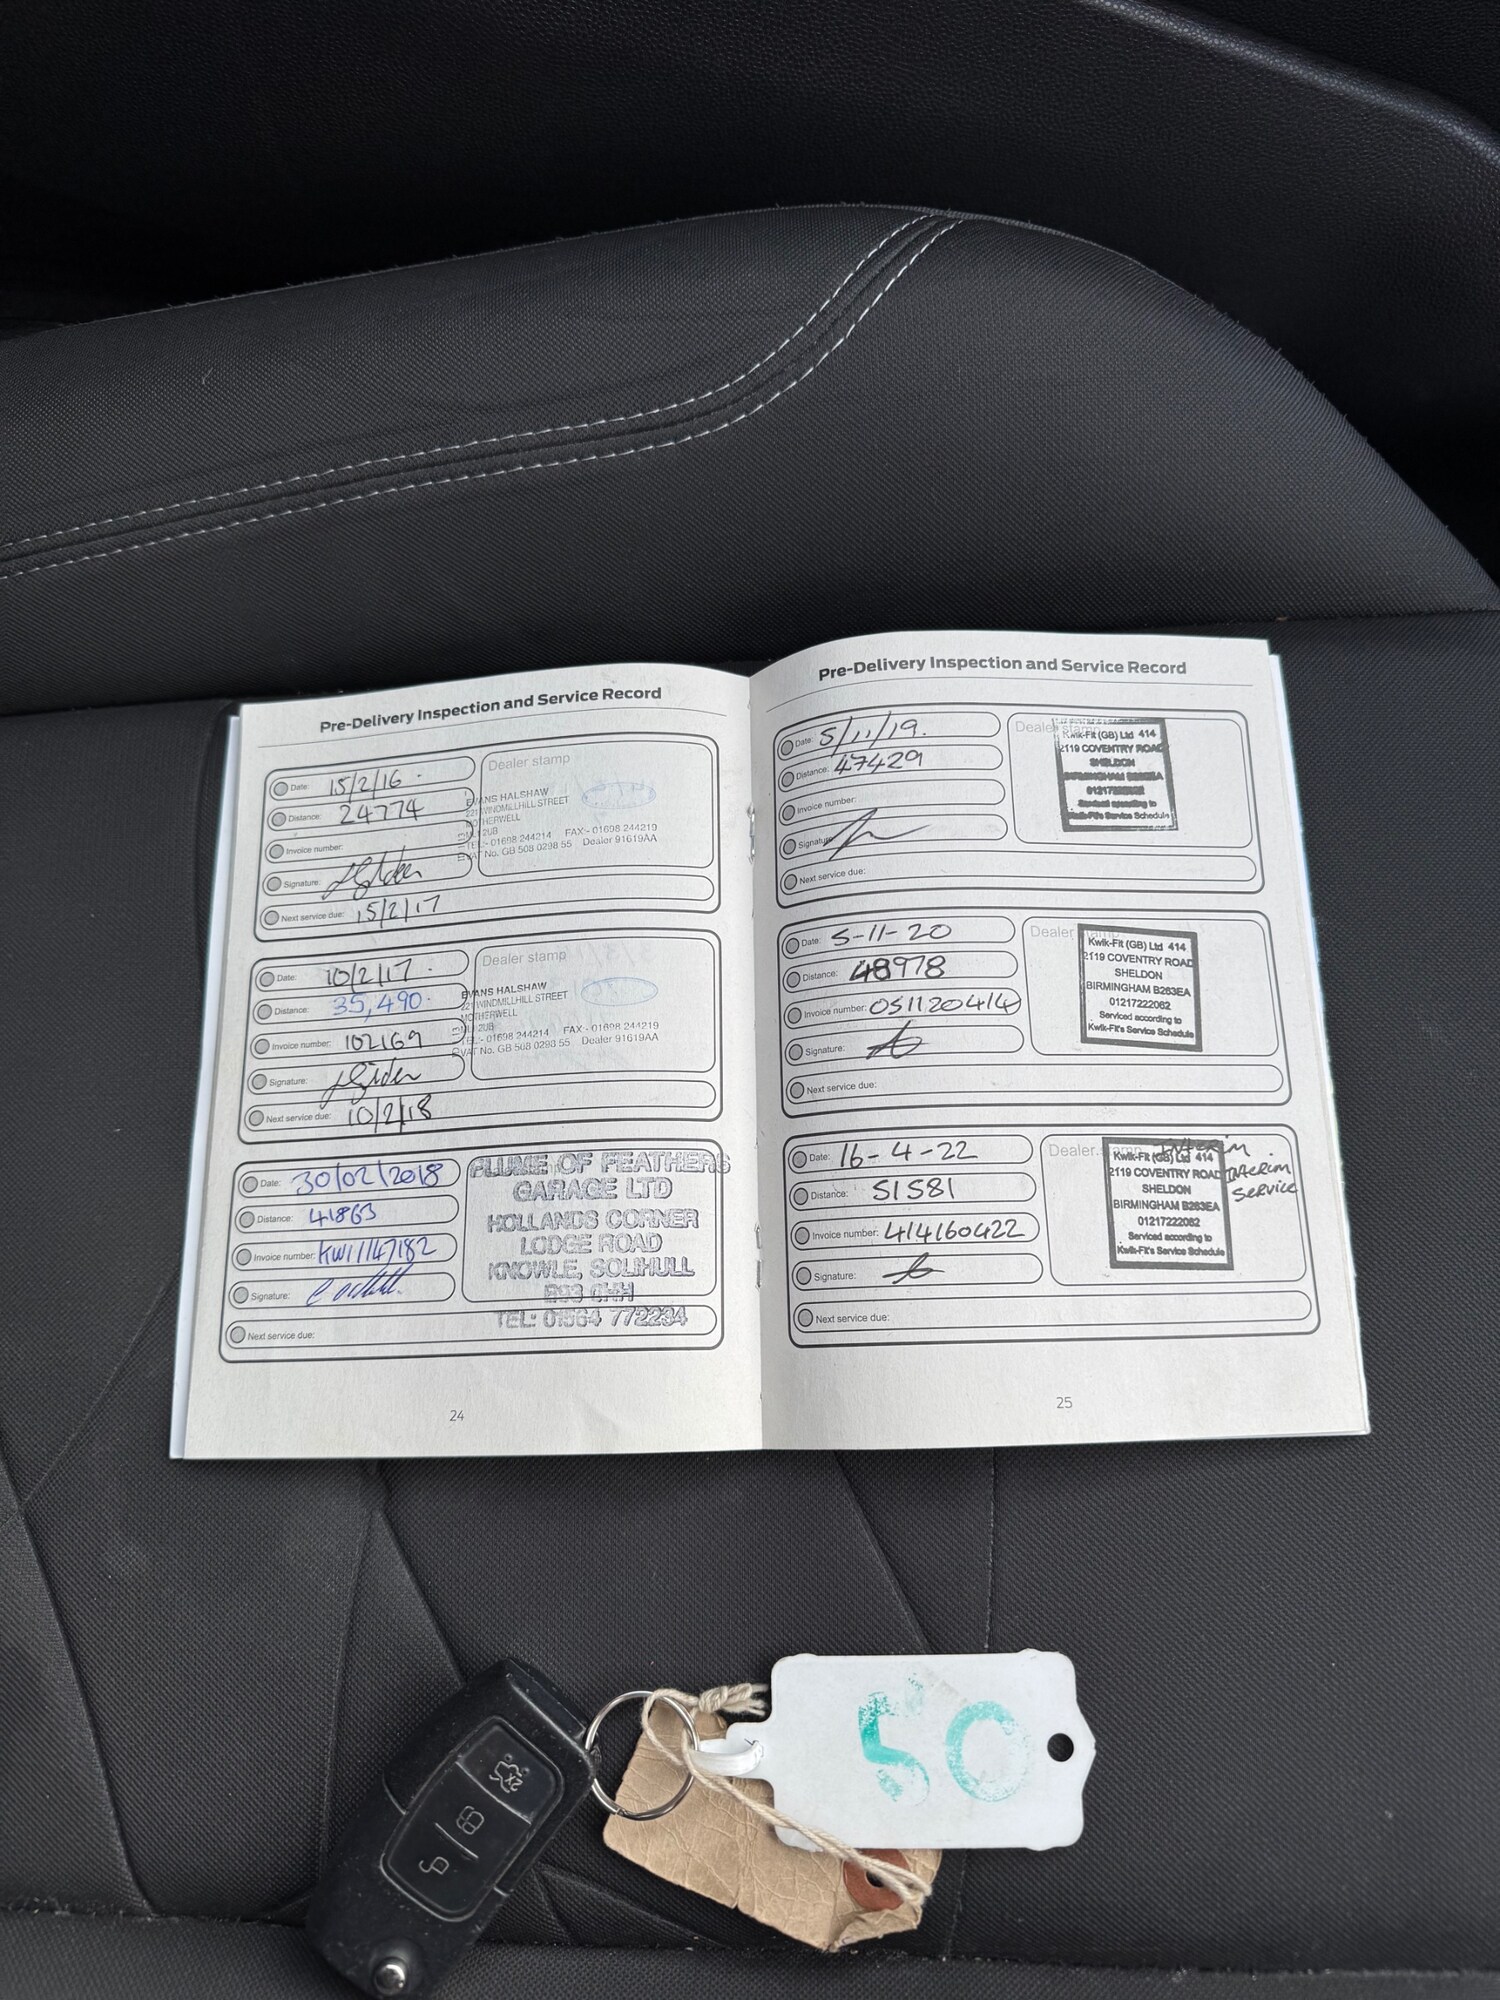 Pre-Delivery Inspection and Service Record
Date: 15/2/16
Distance: 24774
Invoice number:
Signature:
Next service due: 15/2/17
Dealer stamp
EVANS HALSHAW
221 WINDMILLHILL STREET
MOTHERWELL
TEL:- 01698 244214 FAX:- 01698 244219
VAT No. GB 508 0298 55 Dealer 91619AA
Date: 10/2/17
Distance: 35,490
Invoice number: 102169
Signature:
Next service due: 10/2/18
Dealer stamp
EVANS HALSHAW
221 WINDMILLHILL STREET
MOTHERWELL
TEL:- 01698 244214 FAX:- 01698 244219
VAT No. GB 508 0298 55 Dealer 91619AA
Date: 30/02/2018
Distance: 41863
Invoice number: KW1/147182
Signature:
Next service due:
PLUME OF FEATHERS
GARAGE LTD
HOLLANDS CORNER
LODGE ROAD
KNOWLE, SOLIHULL
TEL: 01564 772234
24
Pre-Delivery Inspection and Service Record
Date: 5/11/19.
Distance: 47429
Invoice number:
Signature:
Next service due:
Dealer stamp
Kwik-Fit (GB) Ltd 414
2119 COVENTRY ROAD
SHELDON
BIRMINGHAM B263EA
01217222062
Kwik-Fit's Service Schedule
Date: 5-11-20
Distance: 48978
Invoice number: 051120414
Signature:
Next service due:
Dealer stamp
Kwik-Fit (GB) Ltd 414
2119 COVENTRY ROAD
SHELDON
BIRMINGHAM B263EA
01217222062
Serviced according to
Kwik-Fit's Service Schedule
Date: 16-4-22
Distance: 51581
Invoice number: 414160422
Signature:
Next service due:
Dealer stamp
Interim
Kwik-Fit (GB) Ltd 414
2119 COVENTRY ROAD
SHELDON
BIRMINGHAM B263EA
01217222062
Serviced according to
Kwik-Fit's Service Schedule
Interim
Service
25
x2
50